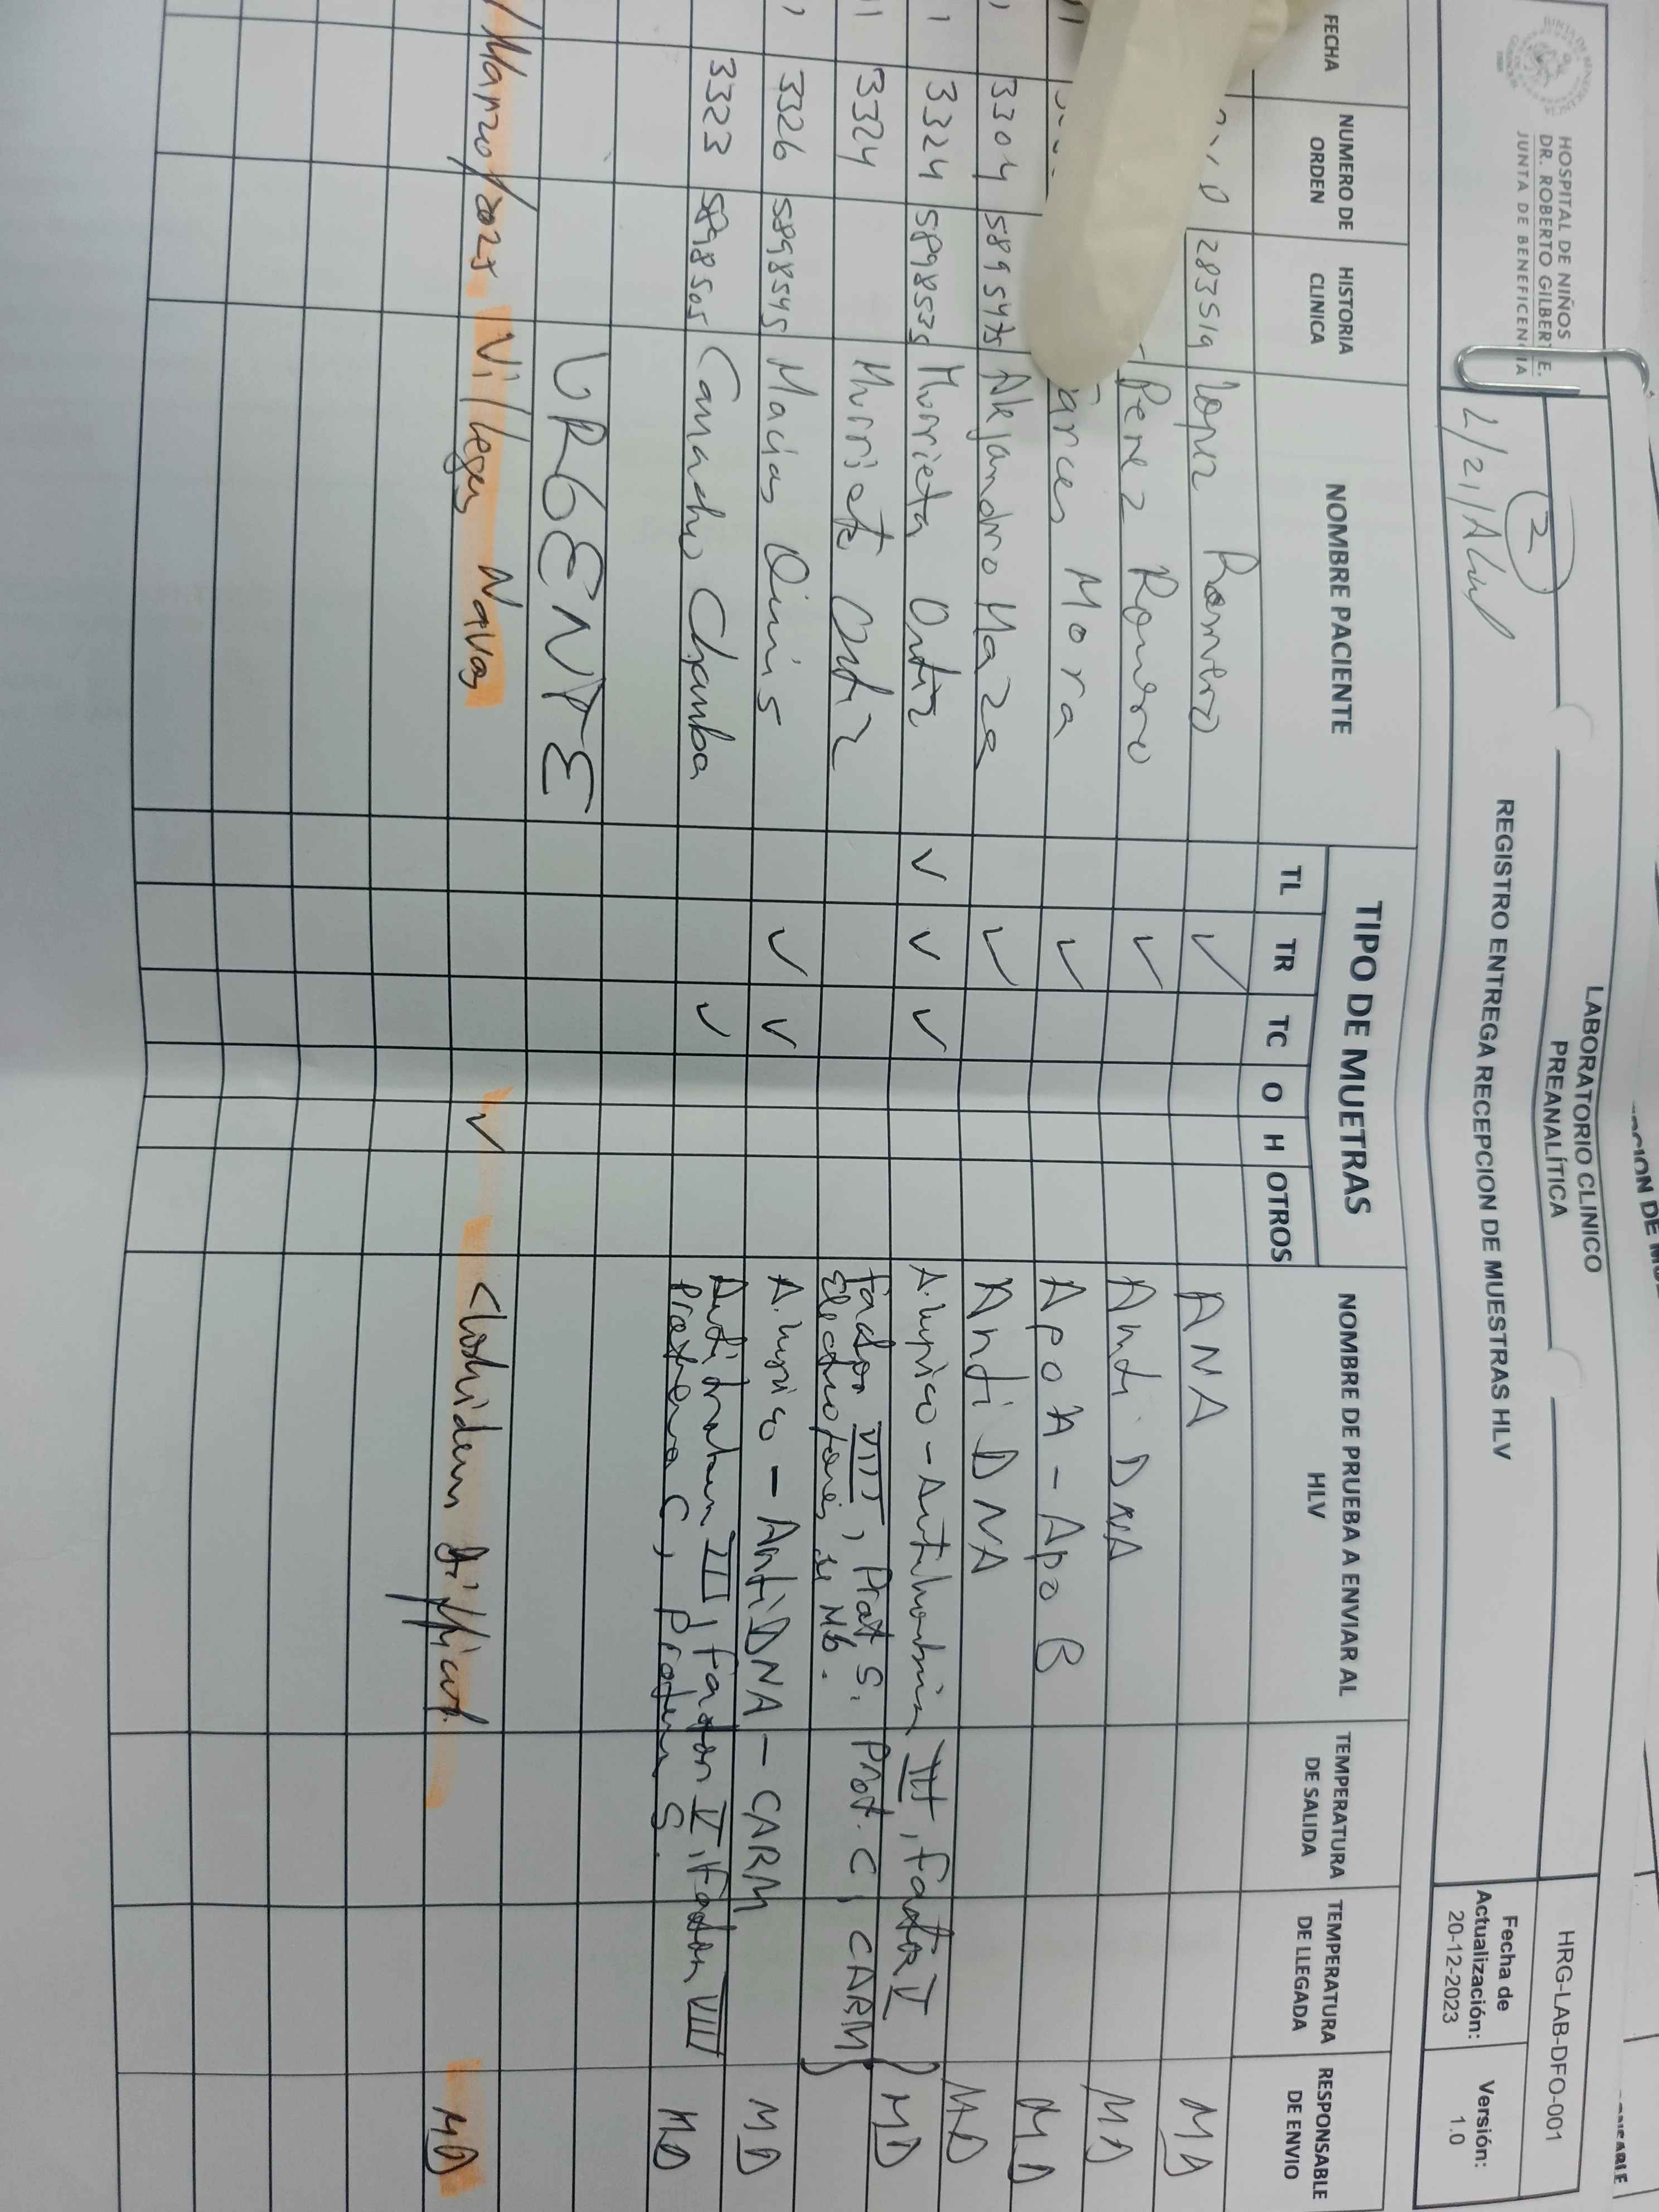 HOSPITAL DE NIÑOS
DR. ROBERTO GILBERT E.
JUNTA DE BENEFICENCIA
LABORATORIO CLINICO
PREANALÍTICA
REGISTRO ENTREGA RECEPCION DE MUESTRAS HLV
HRG-LAB-DFO-001
Fecha de Actualización: 20-12-2023
Versión: 1.0
2
FECHA NUMERO DE ORDEN HISTORIA CLINICA NOMBRE PACIENTE TIPO DE MUETRAS NOMBRE DE PRUEBA A ENVIAR AL HLV TEMPERATURA DE SALIDA TEMPERATURA DE LLEGADA RESPONSABLE DE ENVIO
TL TR TC O H OTROS
283519 Lopez Romero ✓ ANA MD
Perez Romero ✓ Anti DNA MD
Mora ✓ Apo A - Apo B MD
3304 Alejandro Maza ✓ Anti DNA MD
3324 5898535 Murrieta Ortiz ✓ ✓ ✓ A. Lupico - Antitrombina III, Factor V MD
3324 Murrieta Ortiz Factor VIII, Prot S. Prot. C, CARM
Electroforesis de Hb.
3326 5898545 Macias Quinis ✓ ✓ A. Lupico - Anti DNA - CARM MD
3323 5898505 Camacho Chamba ✓ Antitrombina III, Factor V, Factor VIII
Proteina C, Proteina S. MD
URGENTE
/Marzo/2025 Villegas Navas ✓ Clostridium difficil MD